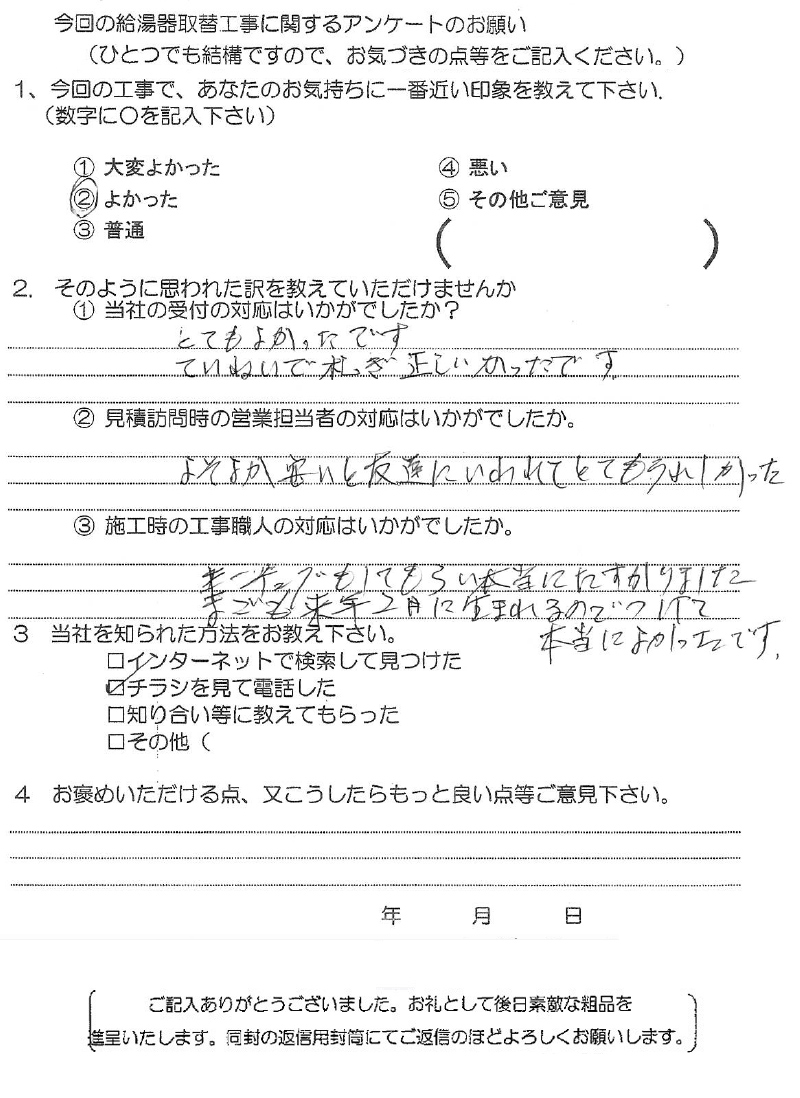 今回の給湯器取替工事に関するアンケートのお願い
（ひとつでも結構ですので、お気づきの点等をご記入ください。）
1、今回の工事で、あなたのお気持ちに一番近い印象を教えて下さい.
（数字に〇を記入下さい）
① 大変よかった ④ 悪い
② よかった ⑤ その他ご意見
③ 普通 ( )
2. そのように思われた訳を教えていただけませんか
① 当社の受付の対応はいかがでしたか？
とてもよかったです
ていねいで れっぎ 正しいかったです
② 見積訪問時の営業担当者の対応はいかがでしたか。
よそよか安いと友達にいわれてとてもうれしかった
③ 施工時の工事職人の対応はいかがでしたか。
もしてもらい本当にたすかりました
まごも来年2月に生まれるのでつけて
本当によかったです.
3 当社を知られた方法をお教え下さい。
□インターネットで検索して見つけた
☑チラシを見て電話した
□知り合い等に教えてもらった
□その他（
4 お褒めいただける点、又こうしたらもっと良い点等ご意見下さい。
年 月 日
ご記入ありがとうございました。お礼として後日素敵な粗品を
進呈いたします。同封の返信用封筒にてご返信のほどよろしくお願いします。